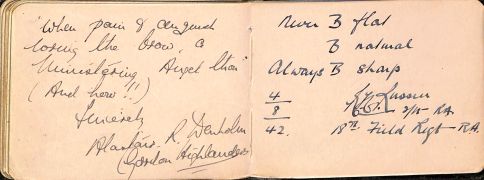 "When pain & anguish
wring the brow, a
Ministering Angel thou"
(And how!!!
Sincerely
Alastair R. Denholm
(Gordon Highlanders)
Never B flat
B natural
Always B sharp
4
8
42.
2/Lt. RA
18th Field Regt - RA.